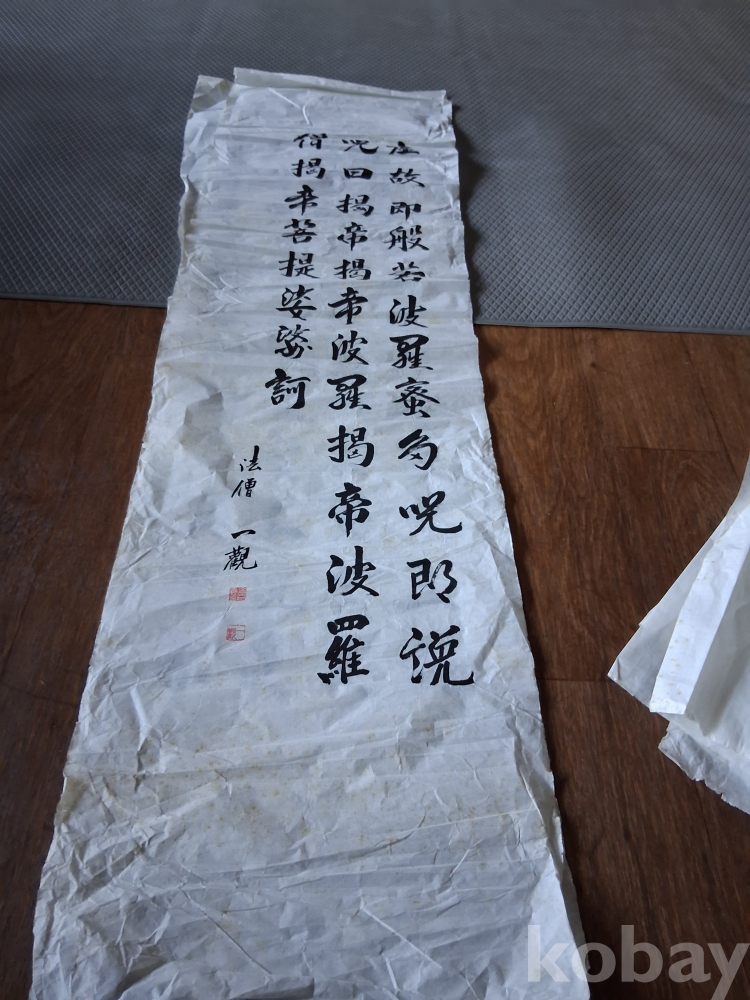 虛故即般若波羅蜜多呪即說
呪曰揭帝揭帝波羅揭帝波羅
僧揭帝菩提娑婆訶
法僧 一觀
kobay